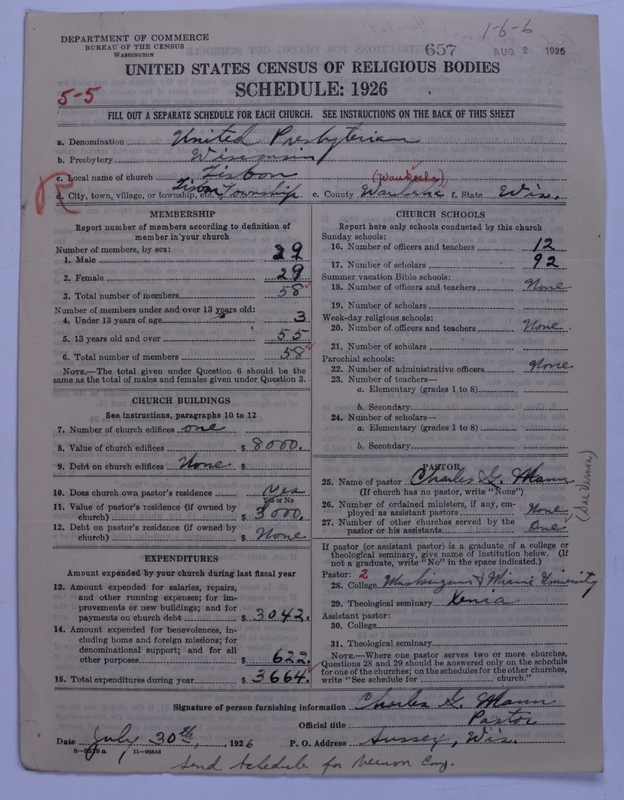 1-6-6
DEPARTMENT OF COMMERCE
BUREAU OF THE CENSUS
WASHINGTON
657 AUG 2 1926
UNITED STATES CENSUS OF RELIGIOUS BODIES
SCHEDULE: 1926
5-5
FILL OUT A SEPARATE SCHEDULE FOR EACH CHURCH. SEE INSTRUCTIONS ON THE BACK OF THIS SHEET
a. Denomination United Presbyterian
b. Presbytery Wisconsin
c. Local name of church Lisbon
(Waukesha)
R
d. City, town, village, or township, etc. Township e. County f. State Wis.
MEMBERSHIP
Report number of members according to definition of member in your church
Number of members, by sex:
1. Male 29
2. Female 29
3. Total number of members 58
Number of members under and over 13 years old:
4. Under 13 years of age 3
5. 13 years old and over 55
6. Total number of members 58
NOTE.—The total given under Question 6 should be the
same as the total of males and females given under Question 3.
CHURCH BUILDINGS
See instructions, paragraphs 10 to 12
7. Number of church edifices one
8. Value of church edifices $ 8000.
9. Debt on church edifices None $
10. Does church own pastor's residence Yes
Yes or No
11. Value of pastor's residence (if owned by
church) $ 3000.
12. Debt on pastor's residence (if owned by
church) $ None
EXPENDITURES
Amount expended by your church during last fiscal year
13. Amount expended for salaries, repairs,
and other running expenses; for im-
provements or new buildings; and for
payments on church debt $ 3042.
14. Amount expended for benevolences, in-
cluding home and foreign missions; for
denominational support; and for all
other purposes $ 622.
15. Total expenditures during year $ 3664.
CHURCH SCHOOLS
Report here only schools conducted by this church
Sunday schools:
16. Number of officers and teachers 12
17. Number of scholars 92
Summer vacation Bible schools:
18. Number of officers and teachers None
19. Number of scholars
Week-day religious schools:
20. Number of officers and teachers None.
21. Number of scholars
Parochial schools:
22. Number of administrative officers None
23. Number of teachers—
a. Elementary (grades 1 to 8)
b. Secondary
24. Number of scholars—
a. Elementary (grades 1 to 8)
b. Secondary
PASTOR
25. Name of pastor Charles G. Mann
(If church has no pastor, write "None")
26. Number of ordained ministers, if any, em-
ployed as assistant pastors None
27. Number of other churches served by the
pastor or his assistants One
(See Vernon)
If pastor (or assistant pastor) is a graduate of a college or
theological seminary, give name of institution below. (If
not a graduate, write "No" in the space indicated.)
Pastor: 2
28. College Muskingum & Miami University
29. Theological seminary Xenia
Assistant pastor:
30. College
31. Theological seminary
NOTE.—Where one pastor serves two or more churches,
Questions 28 and 29 should be answered only on the schedule
for one of the churches; on the schedules for the other churches,
write "See schedule for church."
Signature of person furnishing information Charles G. Mann
Official title Pastor
Date July 30th, 1926 P. O. Address Sussex, Wis.
Send Schedule for Vernon Cong.